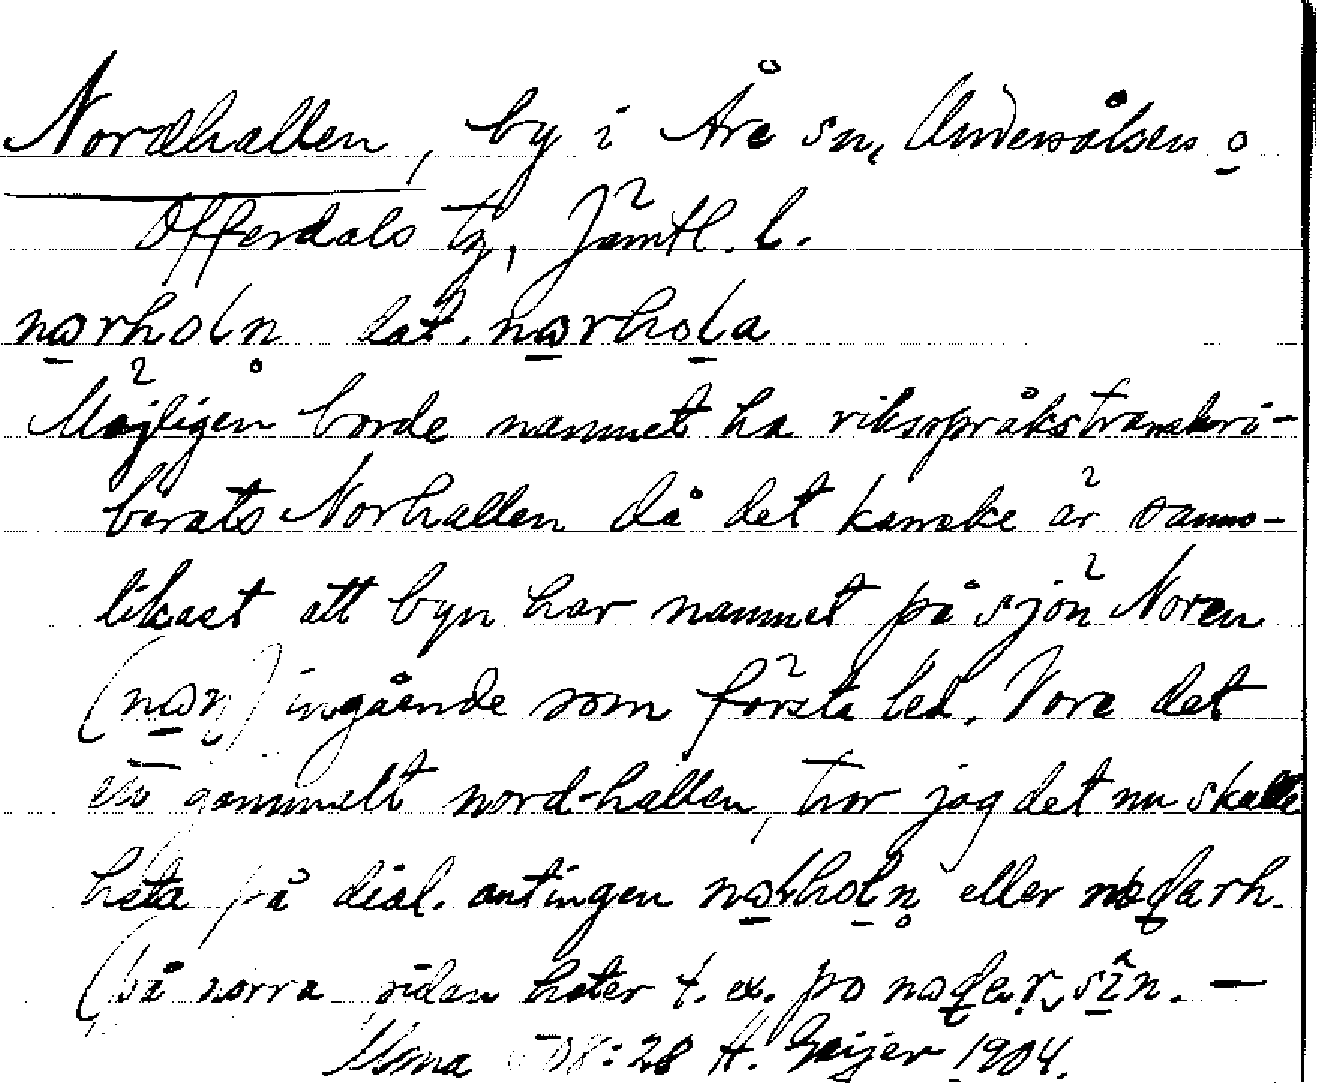 Nordhallen, by i Åre sn, Undersåkers o
Offerdals tg, Jämtl. l.
nɷrholn dat. nɷrhola
Möjligen borde namnet ha riksspråkstranskri-
berats Norhallen då det kanske är sanno-
likast att byn har namnet på sjön Noren
(nɷn) ingående som första led. Vore det
ett gammalt nord-hallen, tror jag det nu skulle
heta på dial. antingen eller
(på norra sidan heter t. ex. po
28 H. Geijer 1904.